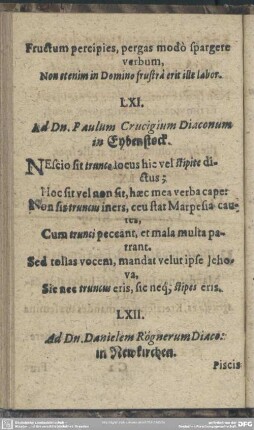 Fructum percipies, pergas modò spargere
verbum,
Non etenim in Domino frustrà erit ille labor.
LXI.
Ad Dn. Paulum Crucigium Diaconum
in Eybenstock.
NEscio sit trunco locus hic vel stipite di-
ctus;
Hoc sit vel non sit, hæc mea verba cape:
Non sis truncus iners, ceu stat Marpesia cau-
tes,
Cum trunci peccant, et mala multa pa-
trant.
Sed tollas vocem, mandat velut ipse Jeho-
va,
Sic nec truncus eris, sic neq; stipes eris.
LXII.
Ad Dn. Danielem Rögnerum Diaco:
in Newkirchen.
Piscis